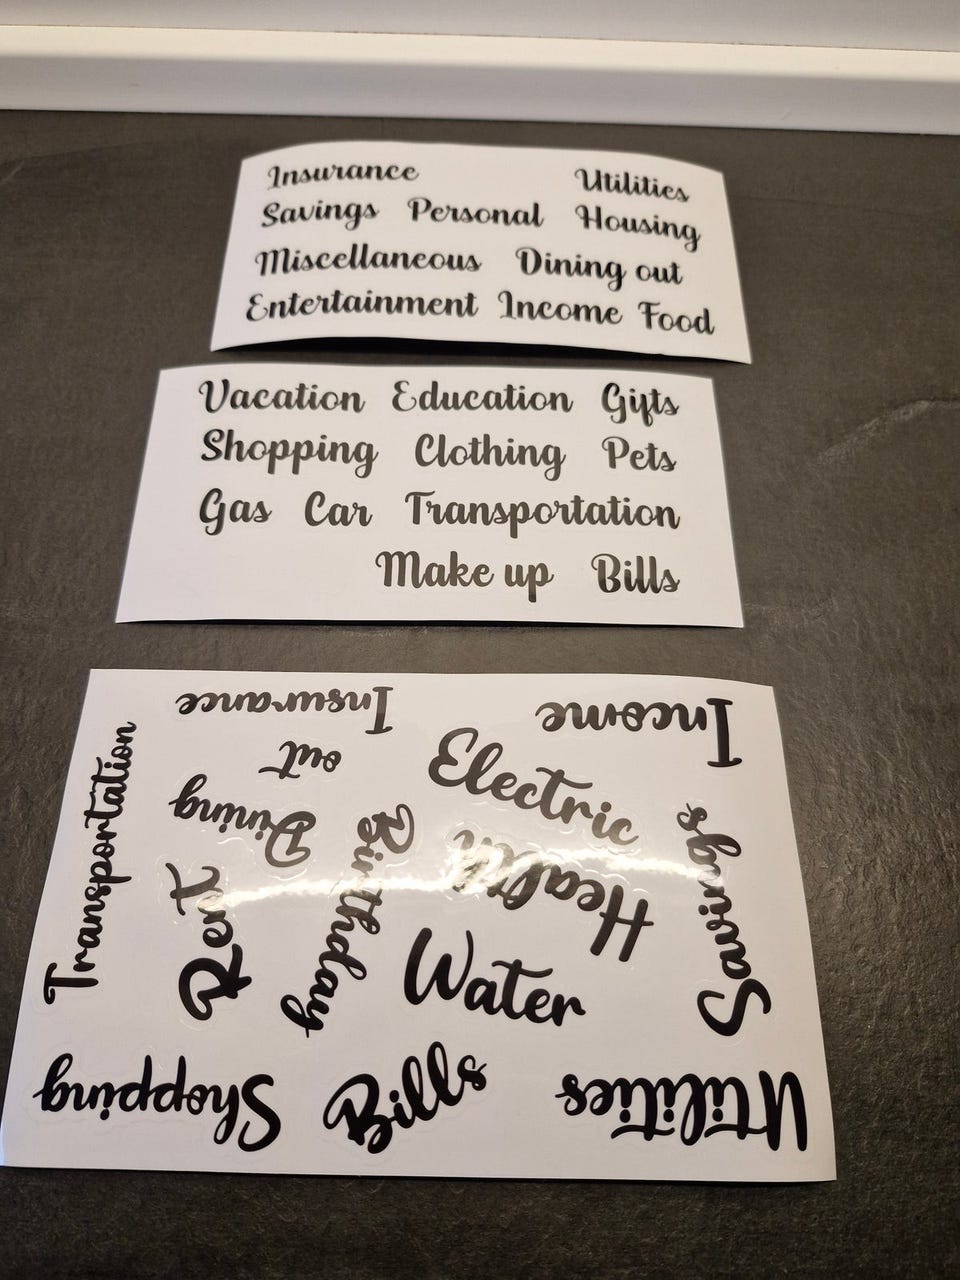 Insurance Utilities
Savings Personal Housing
Miscellaneous Dining out
Entertainment Income Food
Vacation Education Gifts
Shopping Clothing Pets
Gas Car Transportation
Make up Bills
Transportation
Insurance
Income
Dining
out
Electric
Birthday
Health
Savings
Rent
Water
Shopping
Bills
Utilities